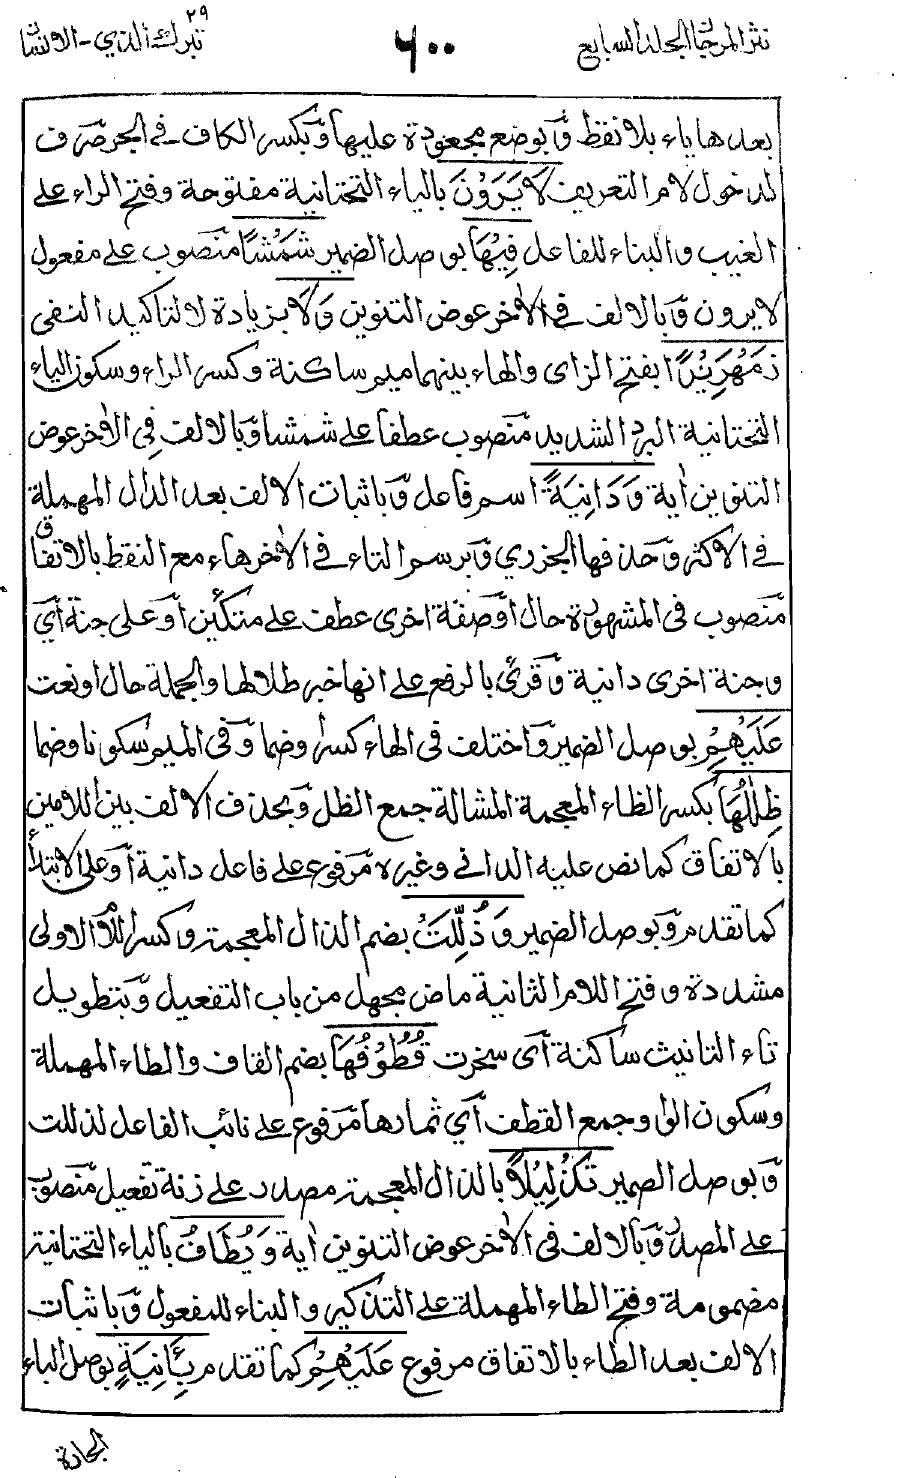 نثر المرجان المجلد السابع
٦٠٠
تبرك الذي ٢٩ - الانسان
بعدها ياء بلا نقط وبوضع مجعودة عليها وبكسر الكاف في الجر صرف
لدخول لام التعريف لَا يَرَوْنَ بالياء التحتانية مفتوحة وفتح الراء على
الغيب والبناء للفاعل فِيْهَا بوصل الضمير شَمْسًا منصوب على مفعول
لا يرون وبالالف في الاخر عوض التنوين وَلَا بزيادة لا لتاكيد النفى
زَمْهَرِيْرًا بفتح الزاى والهاء بينهما ميم ساكنة وكسر الراء وسكون الياء
التحتانية البرد الشديد منصوب عطفا على شمسا وبالالف في الاخر عوض
التنوين اية وَدَانِيَةً اسم فاعل وباثبات الالف بعد الدال المهملة
في الاكثر وحذفها الجزري وبرسم التاء في الاخر هاء مع النقط بالاتفاق
منصوب في المشهورة حال او صفة اخرى عطف على متكئين او على جنة أي
وجنة اخرى دانية وقرئ بالرفع على انها خبر ظلالها والجملة حال او نعت
عَلَيْهِمْ بوصل الضمير واختلف في الهاء كسرا وضما وفي الميم سكونا وضما
ظِلٰلُهَا بكسر الظاء المعجمة المشالة جمع الظل وبحذف الالف بين اللامين
بالاتفاق كما نص عليه الداني وغيره مرفوع على فاعل دانية او على الابتداء
كما تقدم وبوصل الضمير وَذُلِّلَتْ بضم الذال المعجمة وكسر اللام الاولى
مشددة وفتح اللام الثانية ماض مجهل من باب التفعيل وبتطويل
تاء التانيث ساكنة أي سخرت قُطُوْفُهَا بضم القاف والطاء المهملة
وسكون الواو جمع القطف أي ثمارها مرفوع على نائب الفاعل لذللت
وبوصل الضمير تَذْلِيْلًا بالذال المعجمة مصدر على زنة تفعيل منصوب
على المصدر وبالالف في الاخر عوض التنوين اية وَيُطَافُ بالياء التحتانية
مضمومة وفتح الطاء المهملة على التذكير والبناء للمفعول وباثبات
الالف بعد الطاء بالاتفاق مرفوع عَلَيْهِمْ كما تقدم بِئَانِيَةٍ بوصل الباء
الجارة